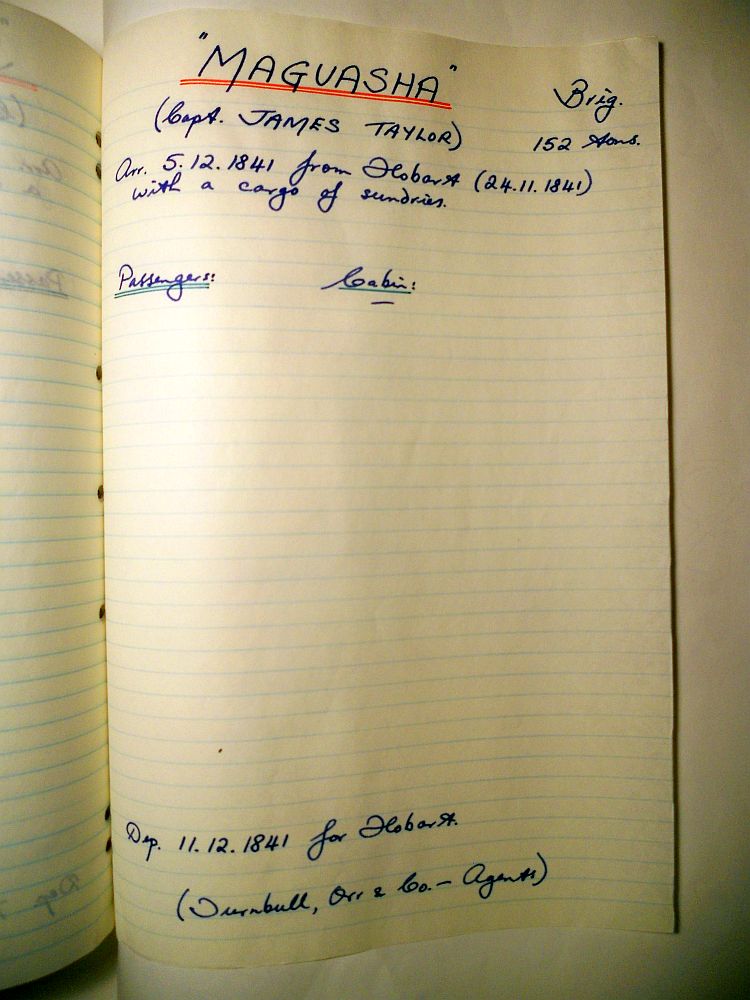 "MAGUASHA"
Brig.
(Capt. JAMES TAYLOR)
152 tons.
Arr. 5.12.1841 from Hobart (24.11.1841)
with a cargo of sundries.
Passengers: Cabin:
—
Dep. 11.12.1841 for Hobart.
(Turnbull, Orr & Co. – Agents)